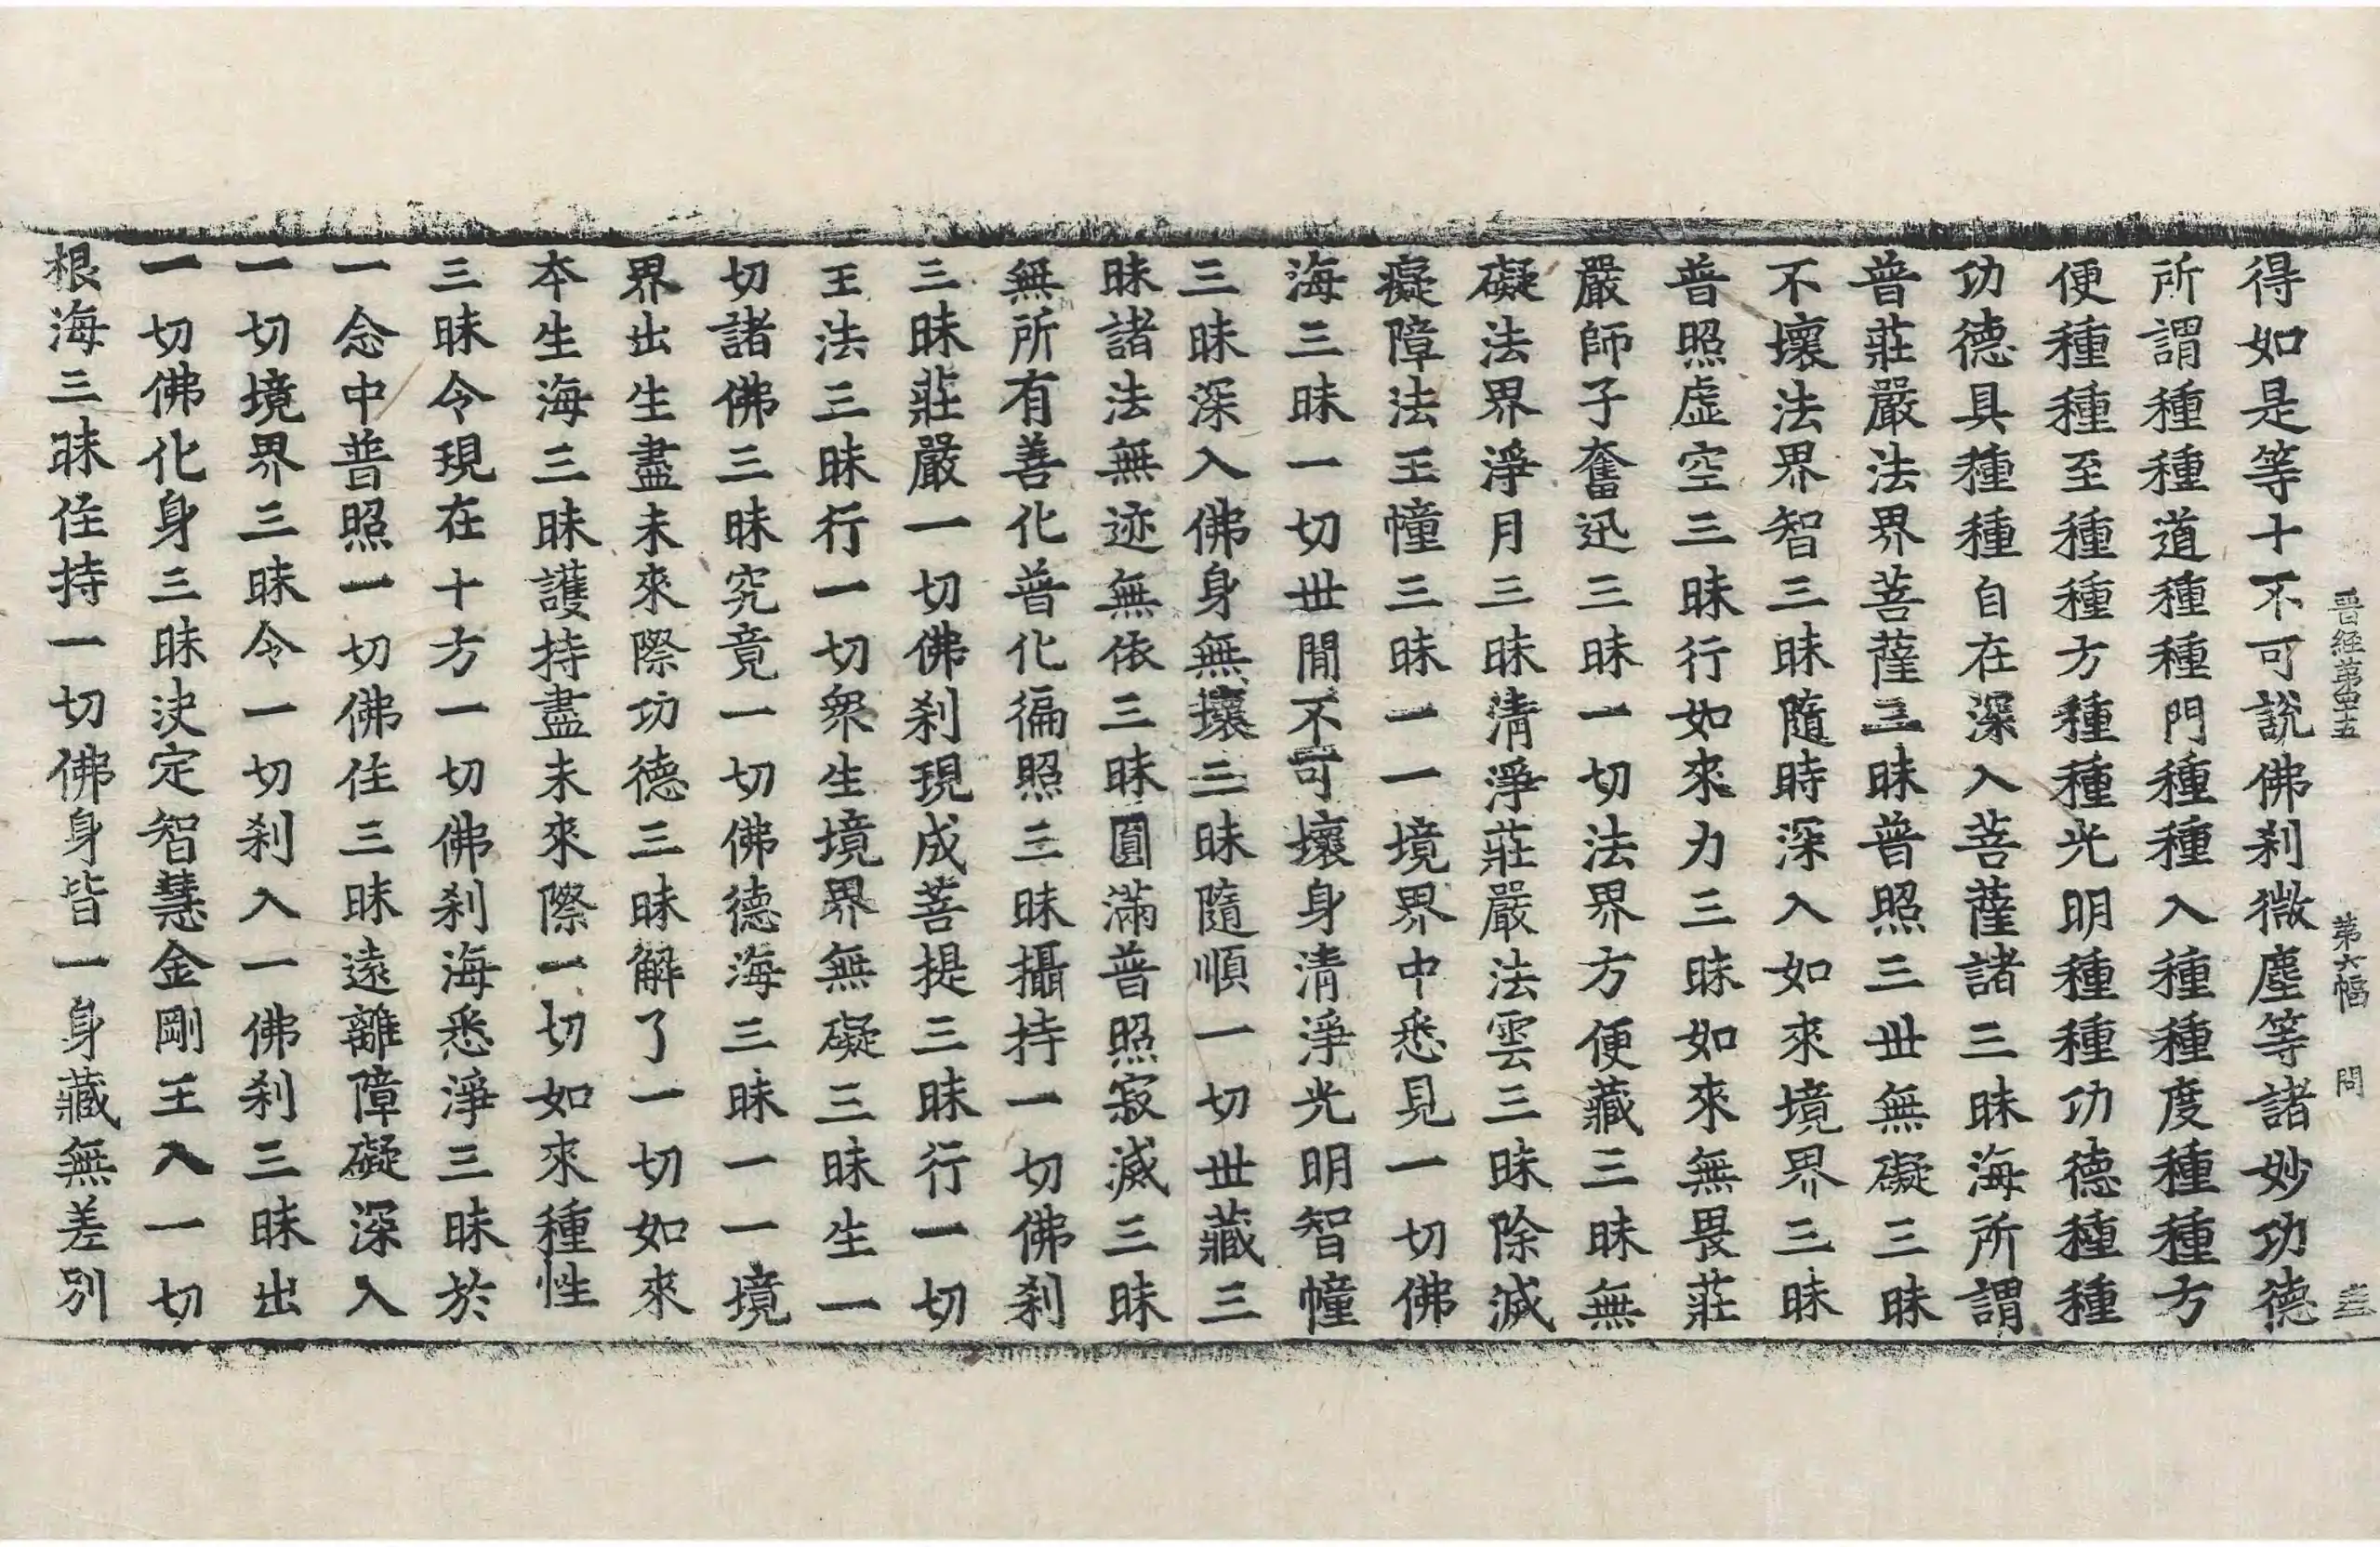 晉經第四十五　第六幅　問　三
得如是等十不可說佛刹微塵等諸妙功德
所謂種種道種種門種種入種種度種種方
便種種至種種方種種光明種種功德種種
功德具種種自在深入菩薩諸三昧海所謂
普莊嚴法界菩薩三昧普照三世無礙三昧
不壞法界智三昧隨時深入如來境界三昧
普照虛空三昧行如來力三昧如來無畏莊
嚴師子奮迅三昧一切法界方便藏三昧無
礙法界淨月三昧清淨莊嚴法雲三昧除滅
癡障法王幢三昧一一境界中悉見一切佛
海三昧一切世閒不可壞身清淨光明智幢
三昧深入佛身無壞三昧隨順一切世藏三
昧諸法無迹無依三昧圓滿普照寂滅三昧
無所有善化普化徧照三昧攝持一切佛刹
三昧莊嚴一切佛刹現成菩提三昧行一切
王法三昧行一切衆生境界無礙三昧生一
切諸佛三昧究竟一切佛德海三昧一一境
界出生盡未來際功德三昧解了一切如來
本生海三昧護持盡未來際一切如來種性
三昧令現在十方一切佛刹海悉淨三昧於
一念中普照一切佛住三昧遠離障礙深入
一切境界三昧令一切刹入一佛刹三昧出
一切佛化身三昧決定智慧金剛王入一切
根海三昧住持一切佛身皆一身藏無差別